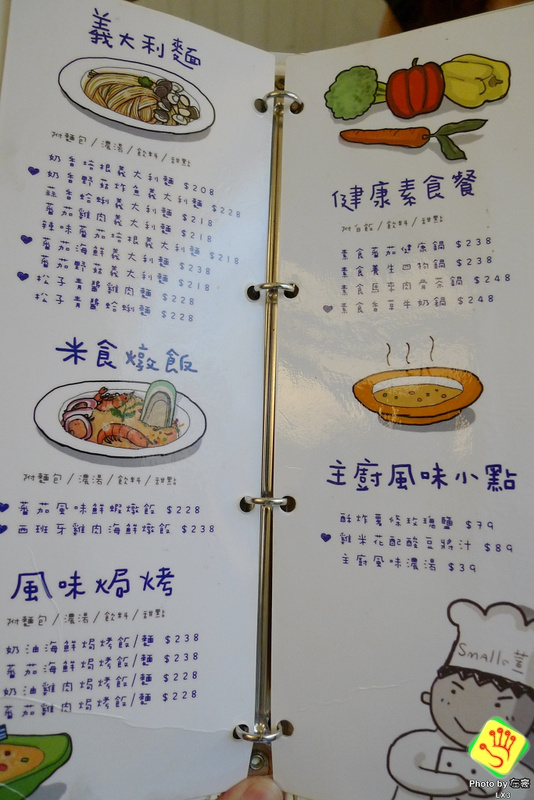 義大利麵
附麵包/濃湯/飲料/甜點
奶香培根義大利麵 $208
奶香野菇炸魚義大利麵 $228
蒜香蛤蜊義大利麵 $218
番茄雞肉義大利麵 $218
辣味番茄培根義大利麵 $218
番茄海鮮義大利麵 $238
番茄野菇義大利麵 $218
松子青醬雞肉麵 $228
松子青醬蛤蜊麵 $228
米食燉飯
附麵包/濃湯/飲料/甜點
番茄風味鮮蝦燉飯 $228
西班牙雞肉海鮮燉飯 $238
風味焗烤
附麵包/濃湯/飲料/甜點
奶油海鮮焗烤飯/麵 $238
番茄海鮮焗烤飯/麵 $238
奶油雞肉焗烤飯/麵 $228
番茄雞肉焗烤飯/麵 $228
健康素食餐
附白飯/飲料/甜點
素食番茄健康鍋 $238
素食養生四物鍋 $238
素食馬來肉骨茶鍋 $248
素食香草牛奶鍋 $248
主廚風味小點
酥炸薯條玫瑰鹽 $79
雞米花配酸豆醬汁 $89
主廚風味濃湯 $39
Smalle
Photo by 左豪
LX3